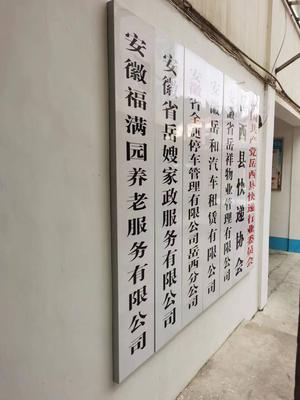 安徽福满园养老服务有限公司
安徽省岳嫂家政服务有限公司
安徽省全西停车管理有限公司岳西分公司
安徽岳和汽车租赁有限公司
安徽省岳祥物业管理有限公司
岳西县快递协会
中国共产党岳西县快递行业委员会